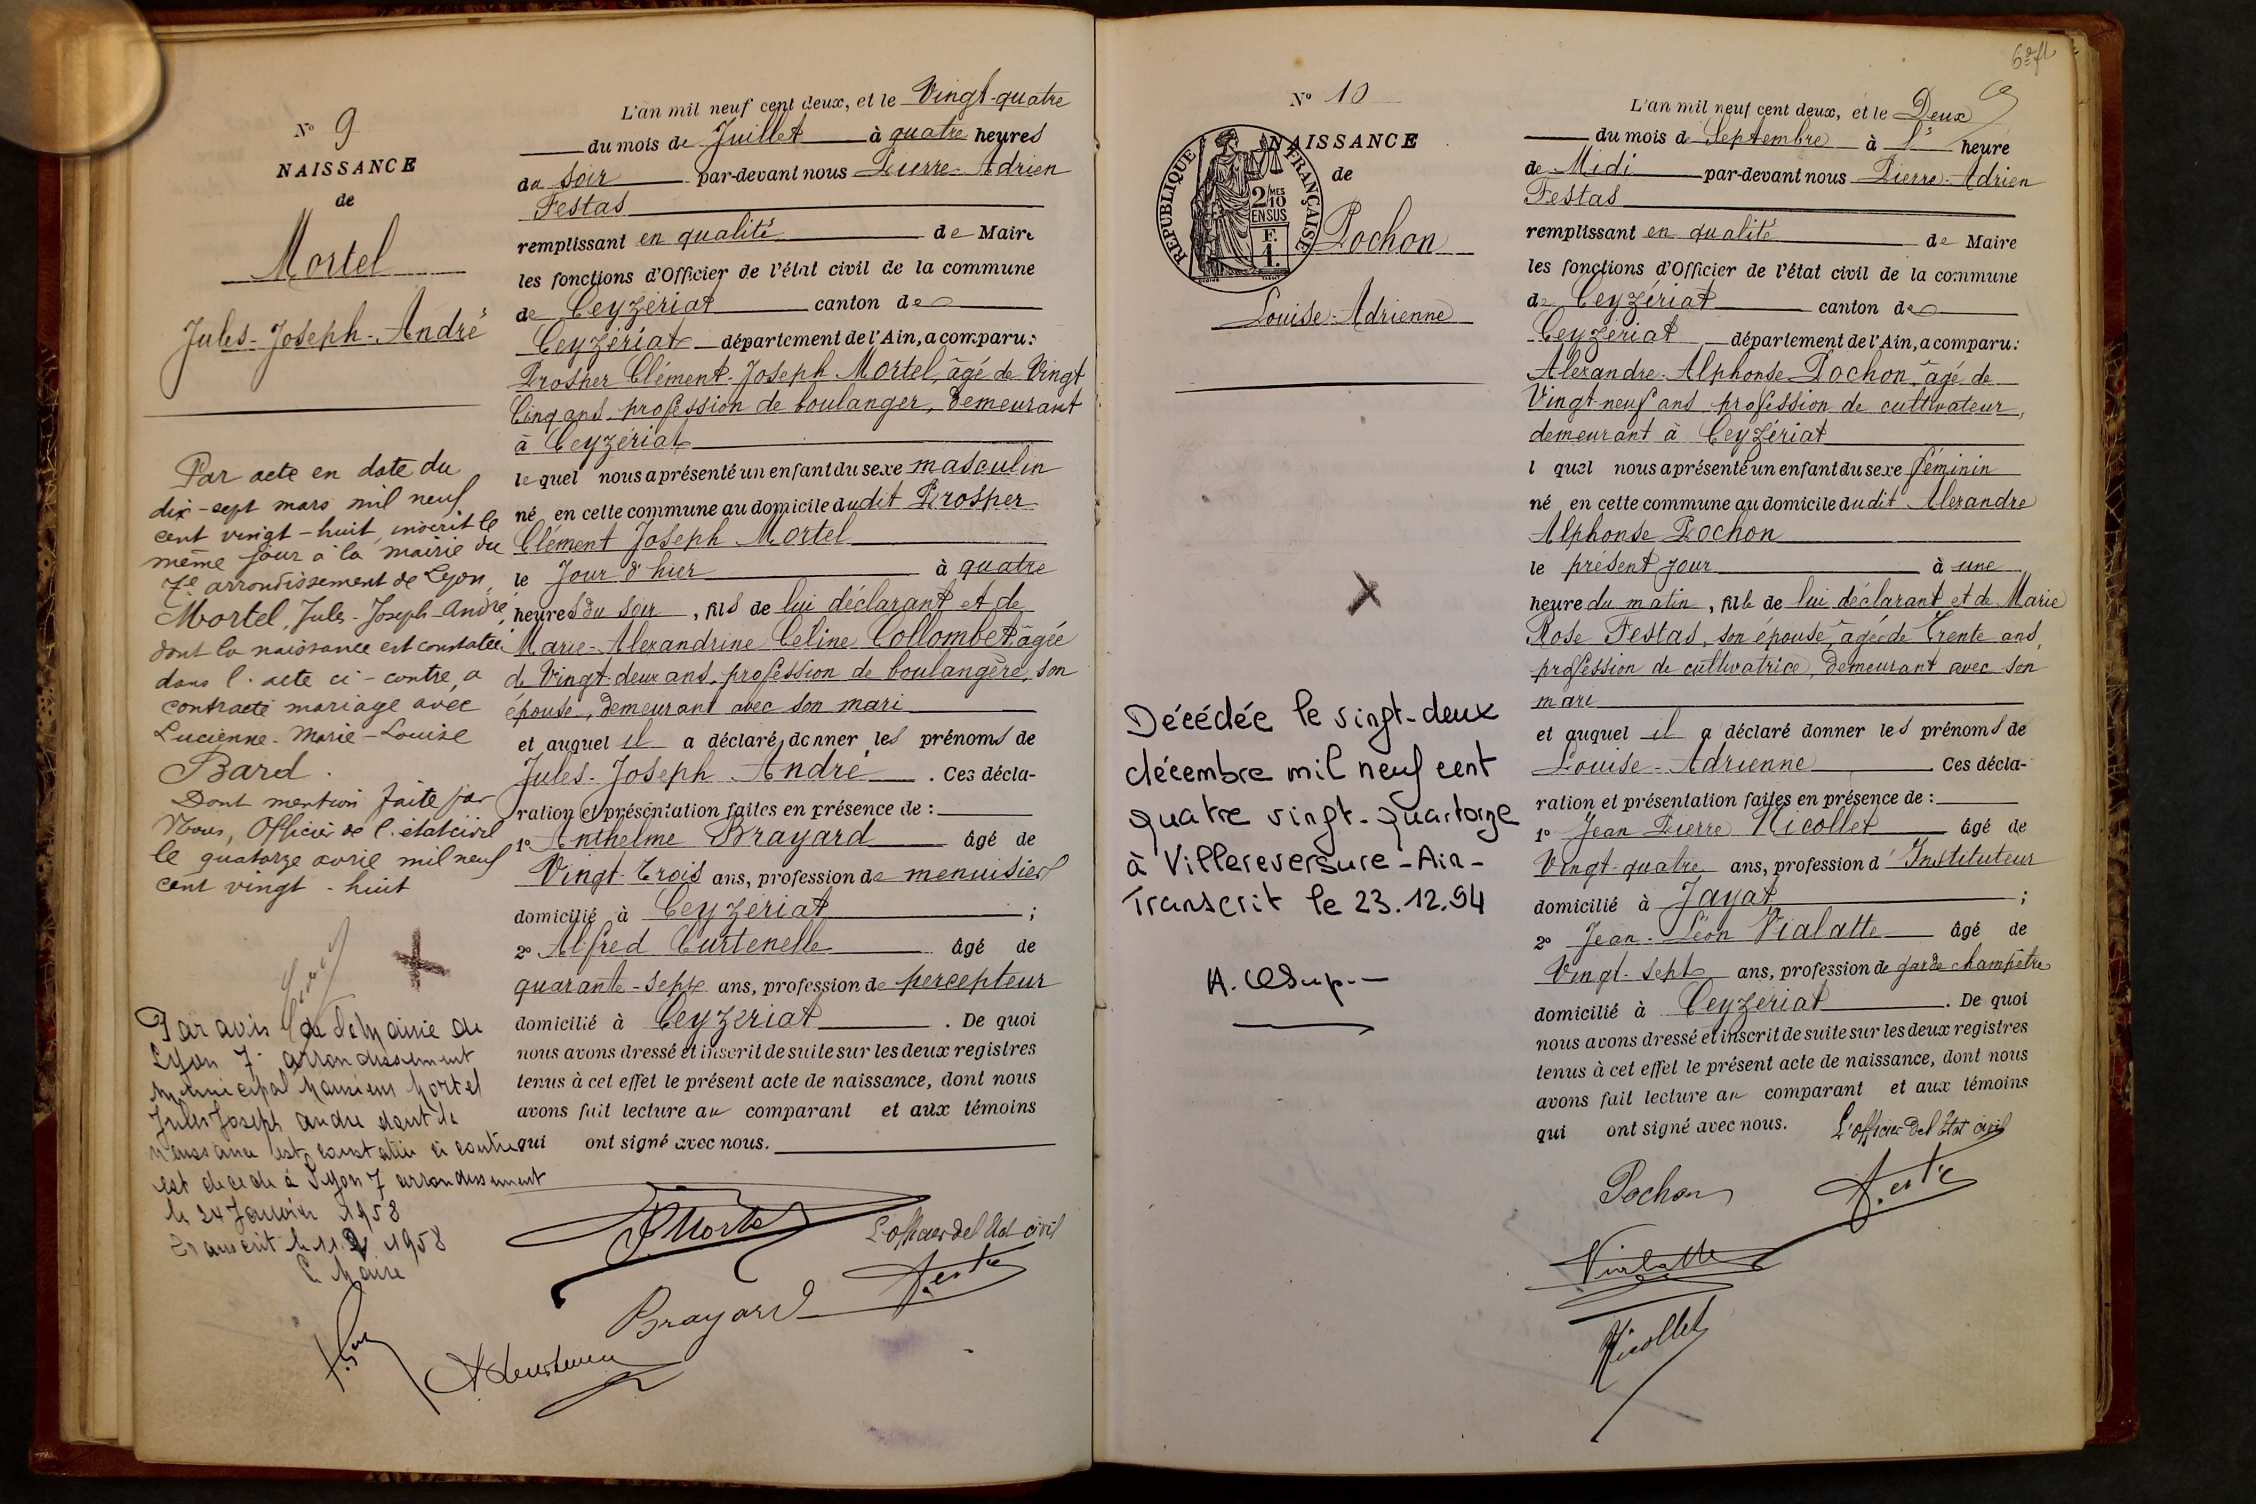 Nº 9
NAISSANCE
de
Mortel
Jules-Joseph-André
Par acte en date du
dix-sept mars mil neuf
cent vingt-huit, inscrit le
même jour à la mairie du
7e arrondissement de Lyon,
Mortel, Jules-Joseph-André,
dont la naissance est constatée
dans l'acte ci-contre, a
contracté mariage avec
Lucienne-Marie-Louise
Bard.
Dont mention faite par
Nous, Officier de l'état civil
le quatorze avril mil neuf
cent vingt-huit
Par avis de la Mairie de
Lyon 7e arrondissement
municipal Monsieur Mortel
Jules Joseph andre dont la
naissance est constatée ci contre
est decede à Lyon 7 arrondissement
le 24 Janvier 1958
Transcrit le 11.2.1958
Le Maire
L'an mil neuf cent deux, et le Vingt-quatre
du mois de Juillet à quatre heures
du soir par-devant nous Pierre-Adrien
Festas
remplissant en qualité de Maire
les fonctions d'Officier de l'état civil de la commune
de Ceyzériat canton de
Ceyzériat département de l'Ain, a comparu:
Prosper Clément-Joseph Mortel, âgé de Vingt
Cinq ans, profession de boulanger, demeurant
à Ceyzériat
lequel nous a présenté un enfant du sexe masculin
né en cette commune au domicile dudit Prosper
Clément Joseph Mortel
le Jour d'hier à quatre
heures du soir, fils de lui déclarant et de
Marie-Alexandrine Celine Collombet, âgée
de Vingt-deux ans, profession de boulangère, son
épouse, demeurant avec son mari
et auquel il a déclaré donner les prénoms de
Jules-Joseph André. Ces décla-
ration et présentation faites en présence de :
1º Anthelme Brayard âgé de
Vingt-Trois ans, profession de menuisier
domicilié à Ceyzeriat ;
2º Alfred Curtenelle âgé de
quarante-sept ans, profession de percepteur
domicilié à Ceyzeriat. De quoi
nous avons dressé et inscrit de suite sur les deux registres
tenus à cet effet le présent acte de naissance, dont nous
avons fait lecture au comparant et aux témoins
qui ont signé avec nous.
Mortel
L'officier de l'état civil
Brayard
6e fl
Nº 10
NAISSANCE
de
REPUBLIQUE FRANÇAISE
2/10 MES
EN SUS
F.
1.
Pochon
Louise-Adrienne
Décédée le vingt-deux
décembre mil neuf cent
quatre vingt-quatorze
à Villereversure-Ain-
Transcrit le 23.12.94
L'an mil neuf cent deux, et le Deux
du mois de Septembre à 1s heure
de Midi par-devant nous Pierre-Adrien
Festas
remplissant en qualité de Maire
les fonctions d'Officier de l'état civil de la commune
de Ceyzériat canton de
Ceyzeriat département de l'Ain, a comparu:
Alexandre-Alphonse Pochon, âgé de
Vingt-neuf ans profession de cultivateur,
demeurant à Ceyzériat
l quel nous a présenté un enfant du sexe féminin
né en cette commune au domicile dudit Alexandre
Alphonse Pochon
le présent jour à une
heure du matin, fille de lui déclarant et de Marie
Rose Festas, son épouse, âgée de Trente ans,
profession de cultivatrice, demeurant avec son
mari
et auquel il a déclaré donner les prénoms de
Louise-Adrienne Ces décla-
ration et présentation faites en présence de :
1º Jean Pierre Nicollet âgé de
Vingt-quatre ans, profession d'Instituteur
domicilié à Jayat ;
2º Jean-Léon Vialatte âgé de
Vingt-sept ans, profession de garde champêtre
domicilié à Ceyzeriat. De quoi
nous avons dressé et inscrit de suite sur les deux registres
tenus à cet effet le présent acte de naissance, dont nous
avons fait lecture au comparant et aux témoins
qui ont signé avec nous. L'officier de l'état civil
Pochon
Vialatte
Nicollet